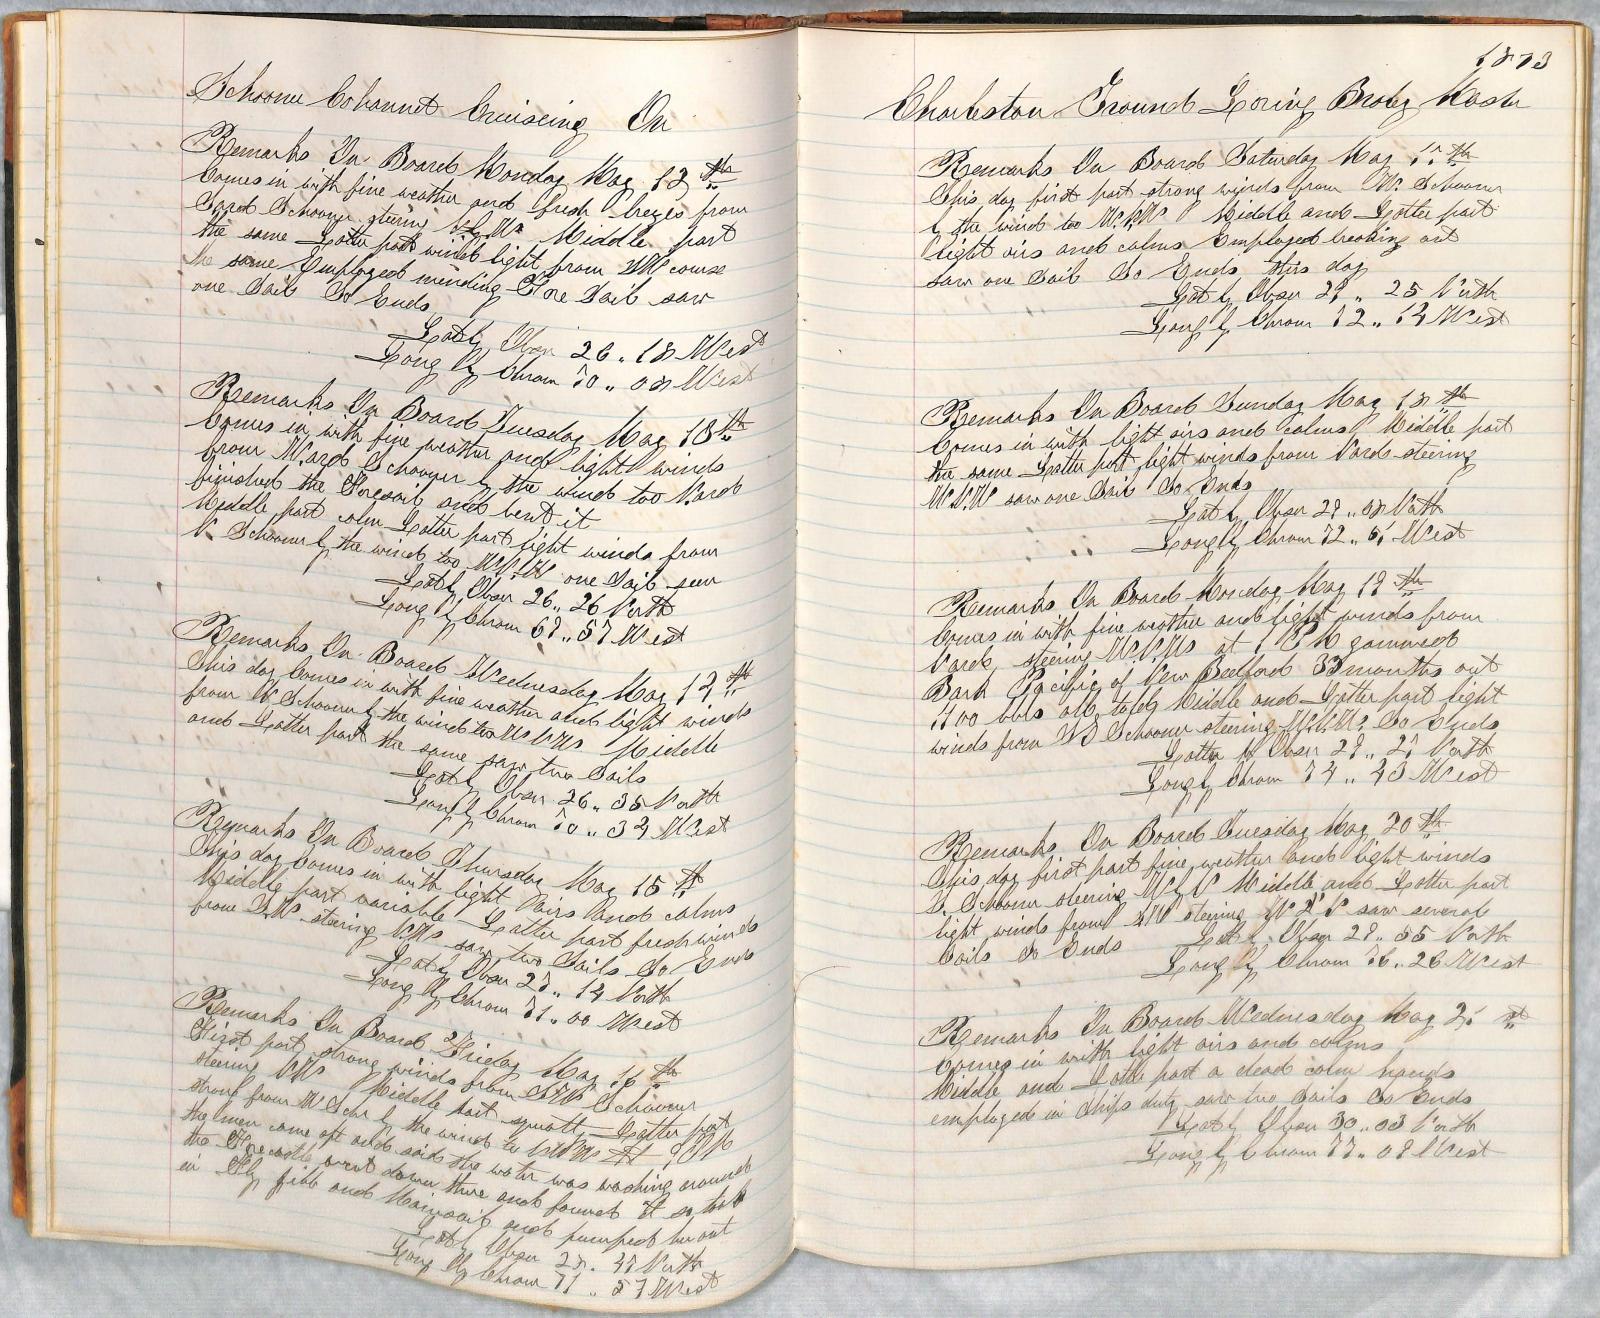 Schooner Cohannet Cruiseing On
Remarks On Board Monday May 12th
Comes in with fine weather and fresh brezes from
Sard Schooner stering Middle part
the same Latter part wind light from SW course
the same Employed mending Fore Sail saw
one Sail So Ends
Lat by Obser 26 " 18 West
Long By Chrom 70 " 08 West
Remarks On Board Tuesday May 13th
Comes in with fine weather and light winds
from Schooner by the wind too Nard
finished the Foresail and bent it
Middle part calm Latter part light winds from
N Schooner by the wind too WNW one Sail seen
Lat by Obser 26 " 26 North
Long By Chrom 69 " 57 West
Remarks On Board Wednesday May 14th
This day Comes in with fine weather and light winds
from N Schooner by the wind too WNW Middle
and Latter part the same saw two Sails
Lat by Obser 26 " 35 North
Long by Chrom 70 " 34 West
Remarks On Board Thursday May 15th
This day Comes in with light Airs and calms
Middle part variable Latter part fresh winds
from SW steering NW saw two Sails So Ends
Lat by Obser 27 " 14 North
Long By Chrom 71 " 00 West
Remarks On Board Friday May 16th
First part strong winds from SSW Schooner
steering NW Middle part squally Latter part
strong from W Schr by the wind to At 9 PM
the men came aft and said the water was washing around
the Forecastle went down there and found it so took
in Fly jibb and Mainsail and pumped her out
Lat by Obser 28 " 47 North
Long By Chrom 71 " 57 West
1873
Charleston Ground Loring Braley Master
Remarks On Board Saturday May 17th
This day first part strong winds from W. Schooner
by the wind too NNW Middle and Latter part
light airs and calms Employed breaking out
saw one Sail So Ends this day
Lat by Obser 29 " 25 North
Long by Chrom 72 " 14 West
Remarks On Board Sunday May 18th
Comes in with light airs and calms Middle part
the same Latter part light winds from Nard steering
WNW saw one Sail So Ends
Lat by Obser 29 " 08 North
Long by Chrom 72 " 51 West
Remarks On Board Monday May 19th
Comes in with fine weather and light winds from
Nard, steering WNW at 1 PM gammed
Bark Pacific of New Bedford 33 months out
400 bbls oil, told Middle and Latter part light
winds from Schooner steering WNW So Ends
Latter by Obser 29 " 27 North
Long by Chrom 74 " 43 West
Remarks On Board Tuesday May 20th
This day first part fine weather and light winds
S Schooner steering W by N Middle and Latter part
light winds from SSW steering saw several
Sails So Ends
Lat by Obser 29 " 55 North
Long By Chrom 76 " 26 West
Remarks On Board Wednesday May 21st
Comes in with light airs and calms
Middle and Latter part a dead calm hands
employed in Ships duty saw two Sails So Ends
Lat by Obser 30 " 03 North
Long by Chrom 77 " 09 West